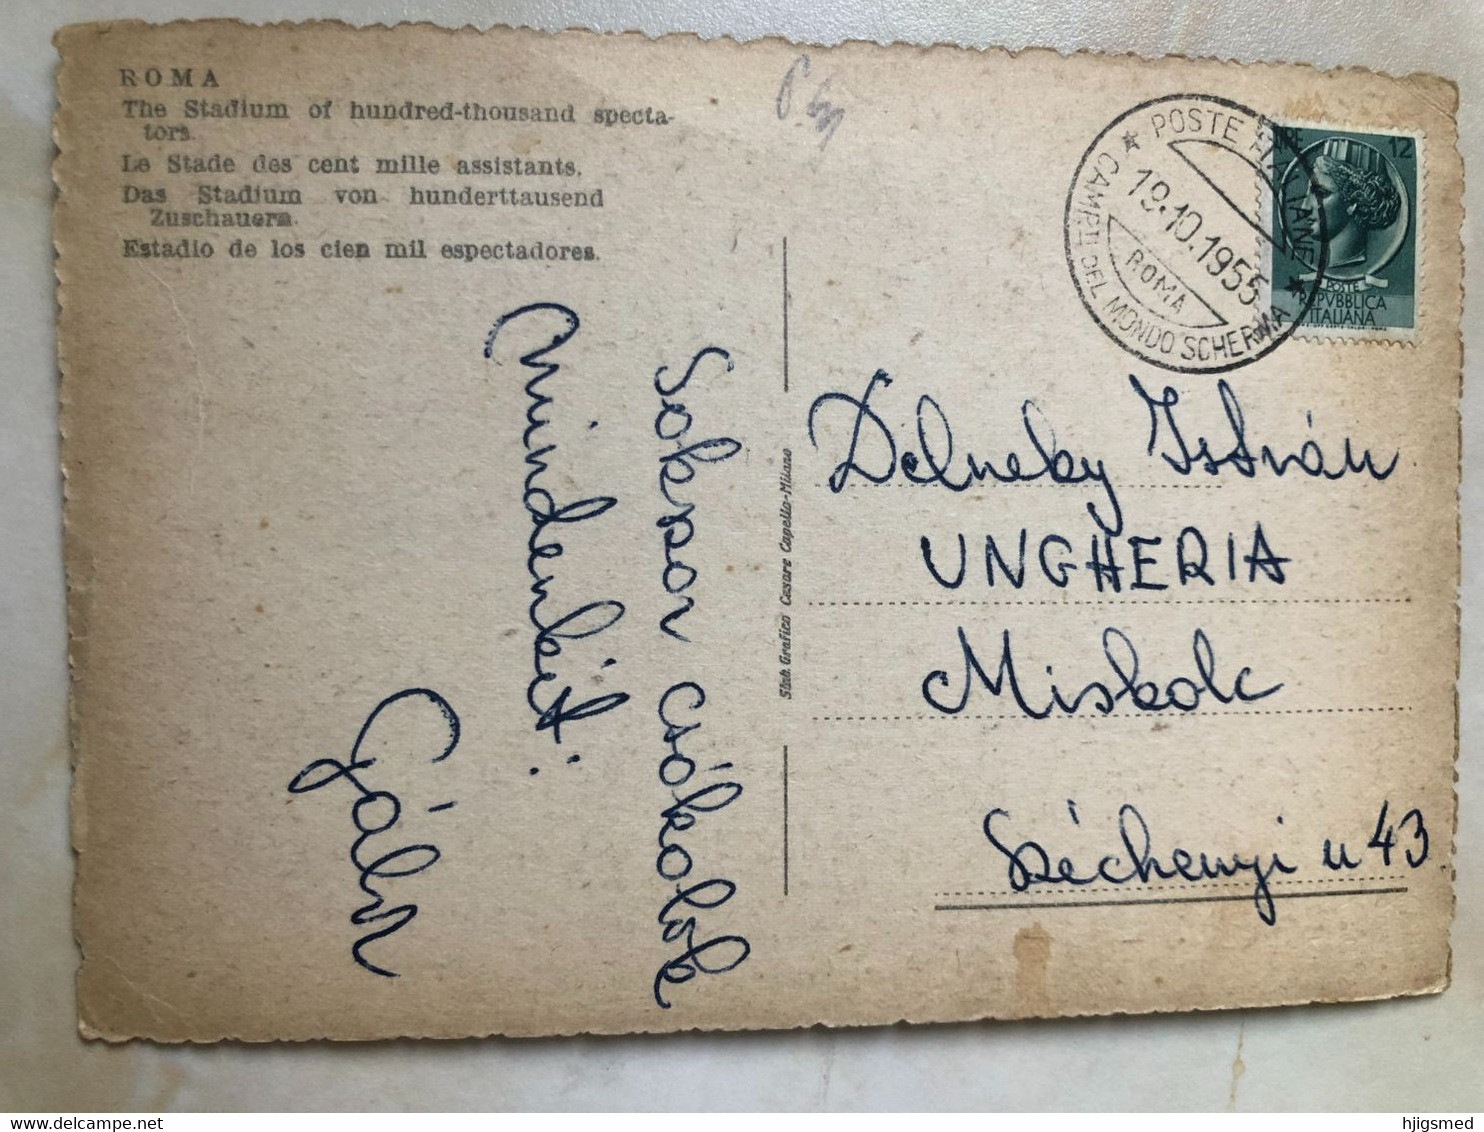 ROMA
The Stadium of hundred-thousand specta-
tors.
Le Stade des cent mille assistants.
Das Stadium von hunderttausend
Zuschauern.
Estadio de los cien mil espectadores.
Sokszor csókolok
mindenkit:
Stab. Grafico Cesare Capello-Milano
★ POSTE ITALIANE ★
19.10.1955
ROMA
CAMP.TI DEL MONDO SCHERMA
LIRE 12
POSTE
REPVBBLICA
ITALIANA
Delneky István
UNGHERIA
Miskolc
Széchenyi u 43.
www.delcampe.net
hjigsmed